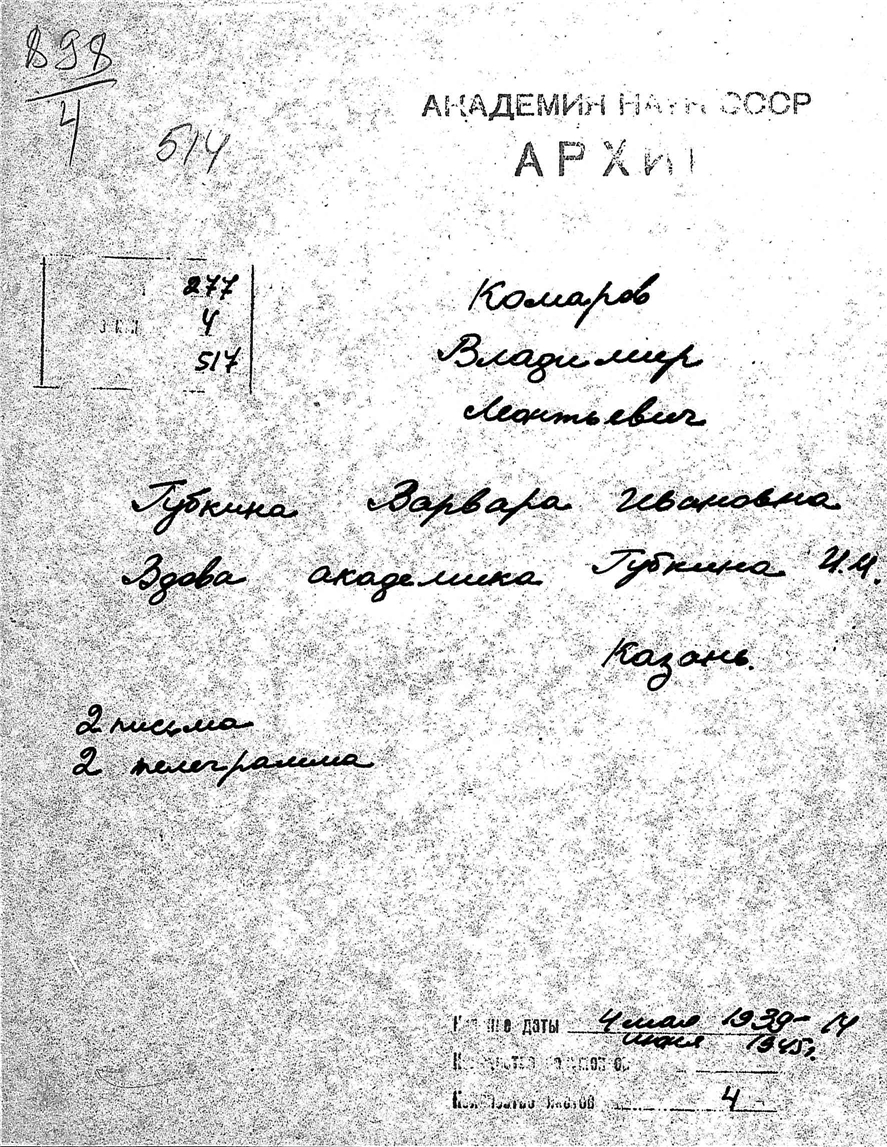 898
4
514
АКАДЕМИЯ НАУК СССР
АРХИВ
277
4
517
Комаров
Владимир
Леонтьевич
Губкина Варвара Ивановна
Вдова академика Губкина И.М.
Казань.
2 письма
2 телеграмма
даты 4 мая 1939 - 14
июня 1945г.
листов 4